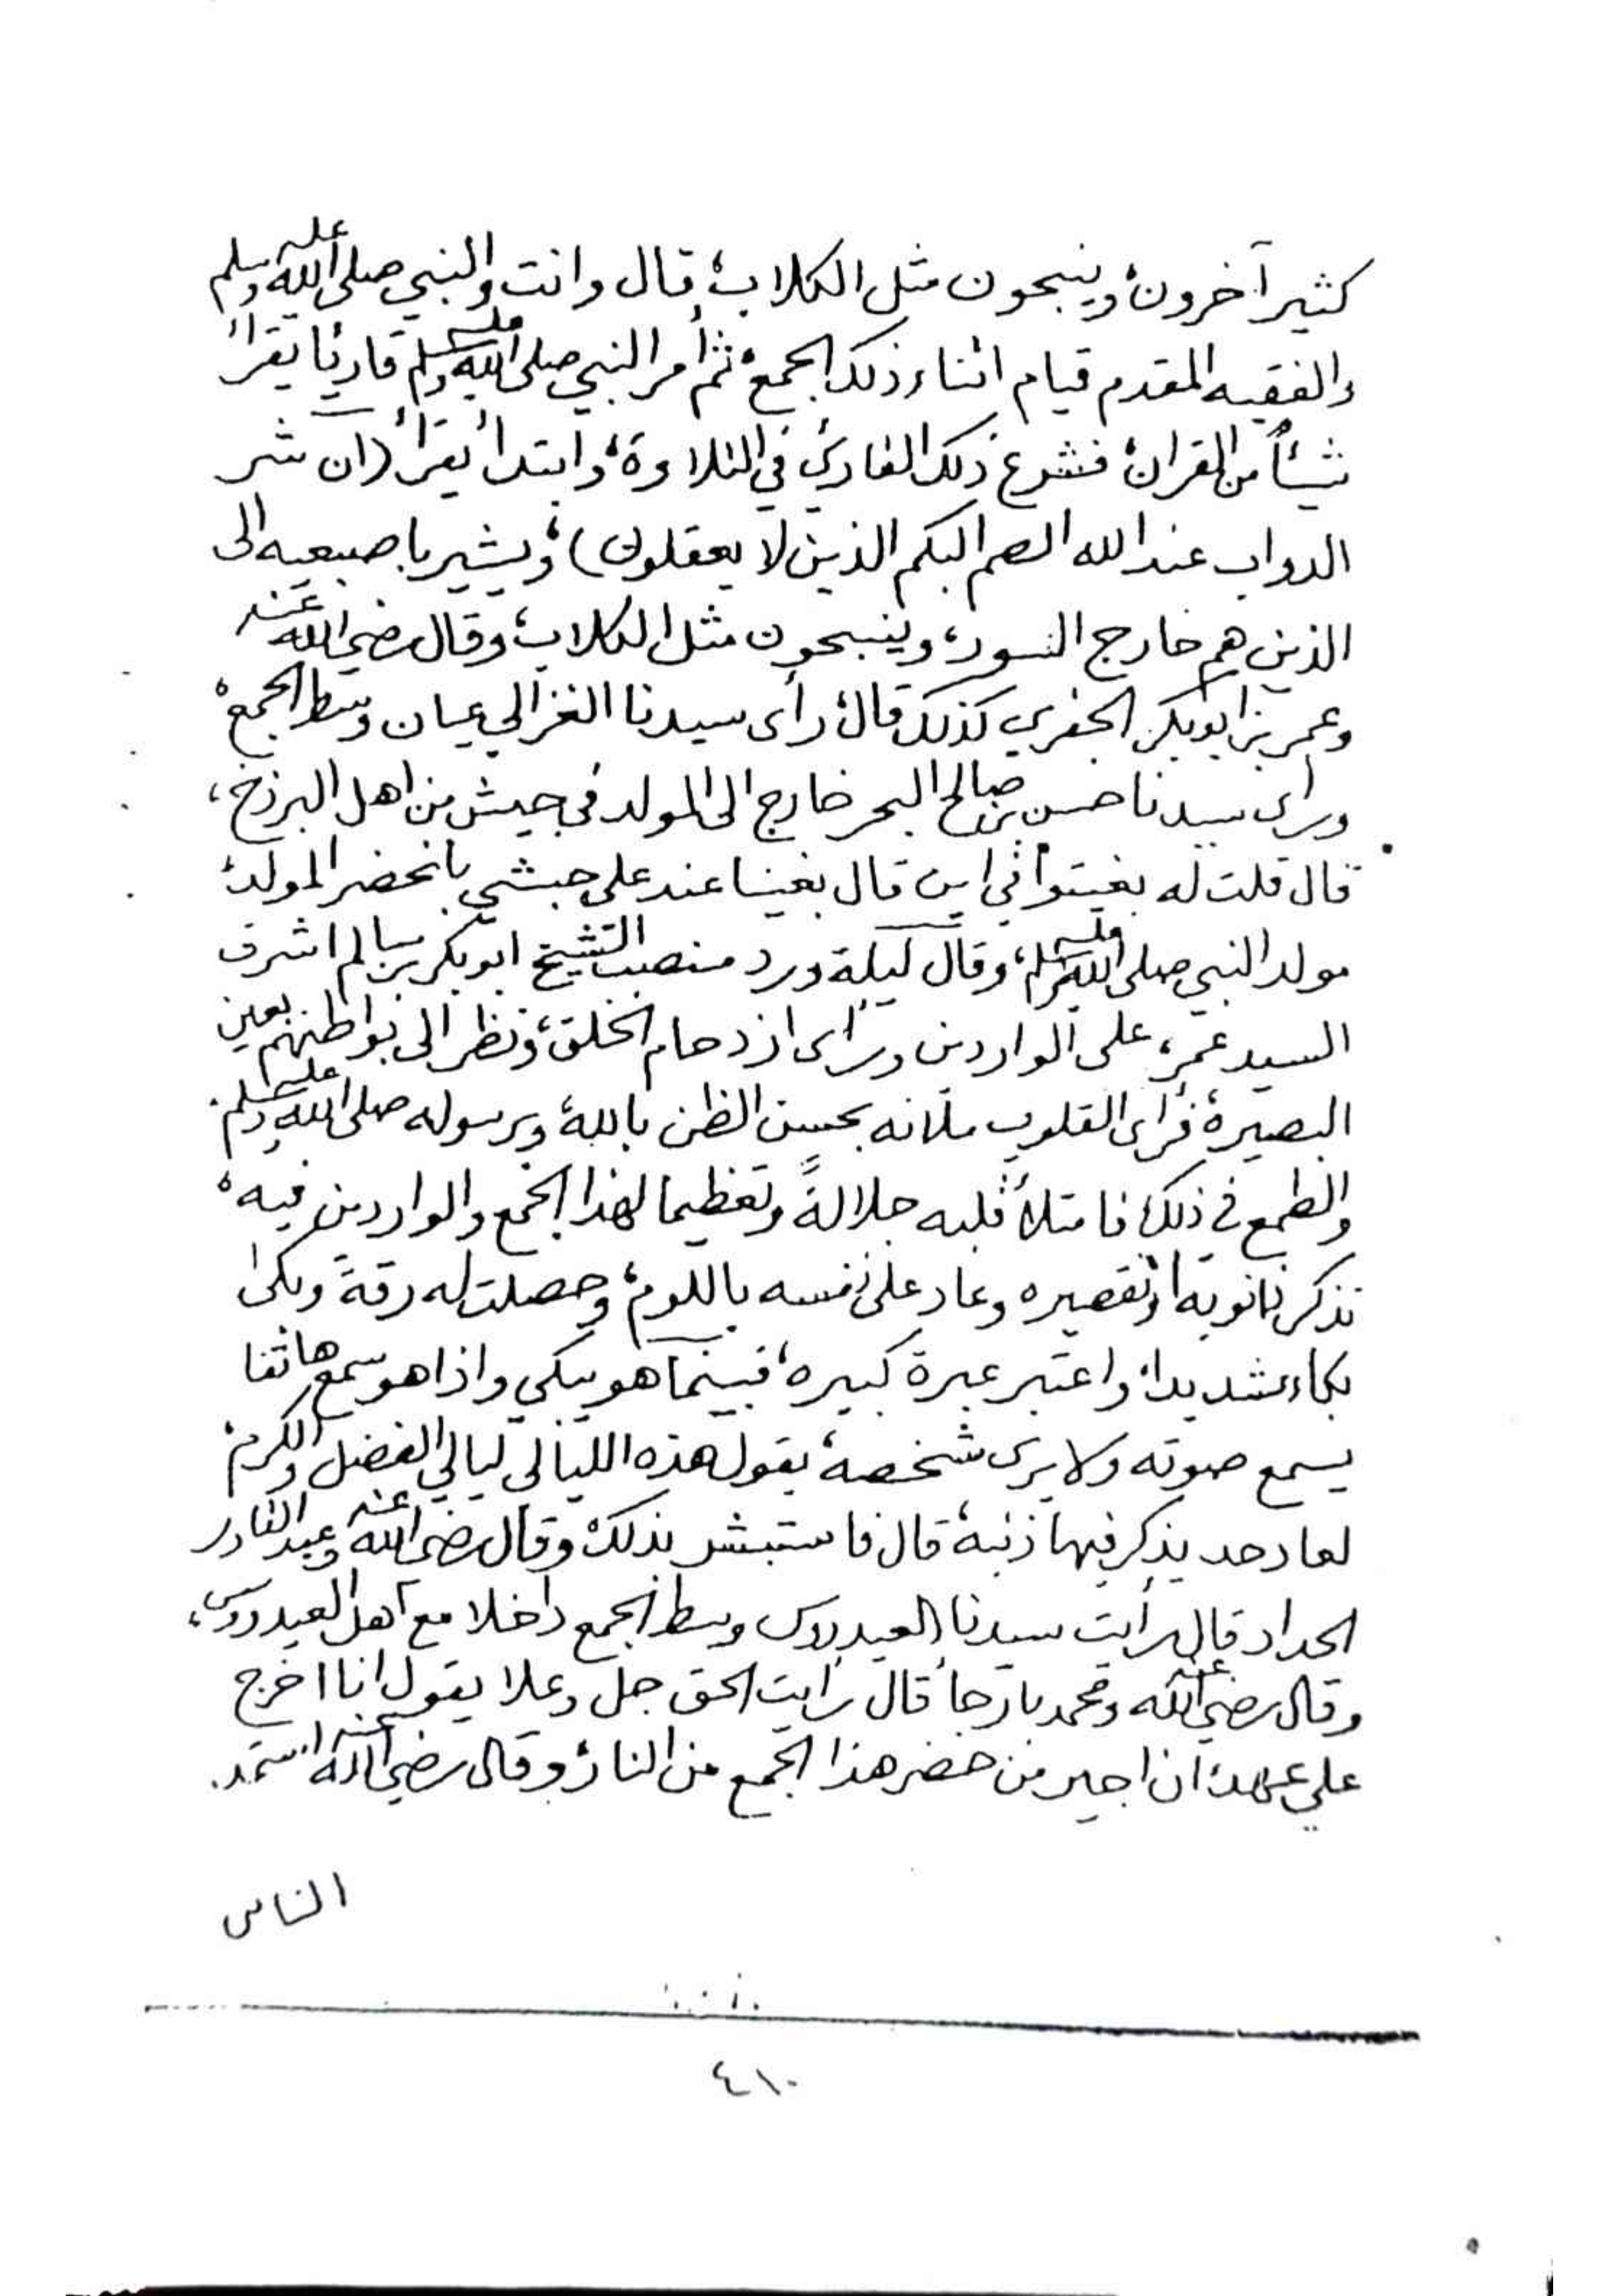 كثير آخرون، وينبحون مثل الكلاب، قال وانت والنبي صلى الله عليه وسلم
والفقيه المقدم قيام اثناء ذلك الجمع، ثم أمر النبي صلى الله عليه وسلم قاريًا يقرأ
شيئاً من القران، فشرع ذلك القاري في التلاوة، وابتدأ يقرأ (ان شر
الدواب عند الله الصم البكم الذين لا يعقلون)، ويشير باصبعيه الى
الذين هم خارج السور، وينبحون مثل الكلاب، وقال رضي الله عنه
وعمر بن ابوبكر الجفري كذلك قال، رأى سيدنا الغزالي عيان وسط الجمع،
ورأى سيدنا حسن بن صالح البحر خارج الى المولد في جيش من اهل البرزخ،
قال قلت له بغيتوا في اين قال بغينا عند علي حبشي بانحضر المولد،
مولد النبي صلى الله عليه وسلم، وقال ليلة ورد منصب الشيخ ابوبكر بن سالم اشرف
السيد عمر، على الواردين ورأى ازدحام الخلق، ونظر الى بواطنهم بعين
البصيرة، فرأى القلوب ملآنه بحسن الظن بالله، وبرسوله صلى الله عليه وسلم.
والطمع في ذلك، فامتلأ قلبه جلالةً وتعظيما لهذا الجمع والواردين فيه،
تذكر ذنوبه، وتقصيره وعاد على نفسه باللوم، وحصلت له رقةً وبكى
بكاء شديدا، واعتبر عبرة كبيره، فبينما هو يبكي واذا هو سمع هاتفا
يسمع صوته ولا يرى شخصه، يقول هذه الليالي ليالي الفضل والكرم،
لعاد حد يذكر فيها ذنبه، قال فاستبشر بذلك، وقال رضي الله عنه وعبد القادر
الحداد قال رأيت سيدنا العيدروس وسط الجمع داخلا مع آهل العيدروس،
وقال رضي الله عنه ومحمد بارجا، قال رأيت الحق جل وعلا يقول انا اخرج
علي عهد، ان اجير من حضر هذا الجمع من النار، وقال رضي الله عنه استمد.
الناس
٤١٠